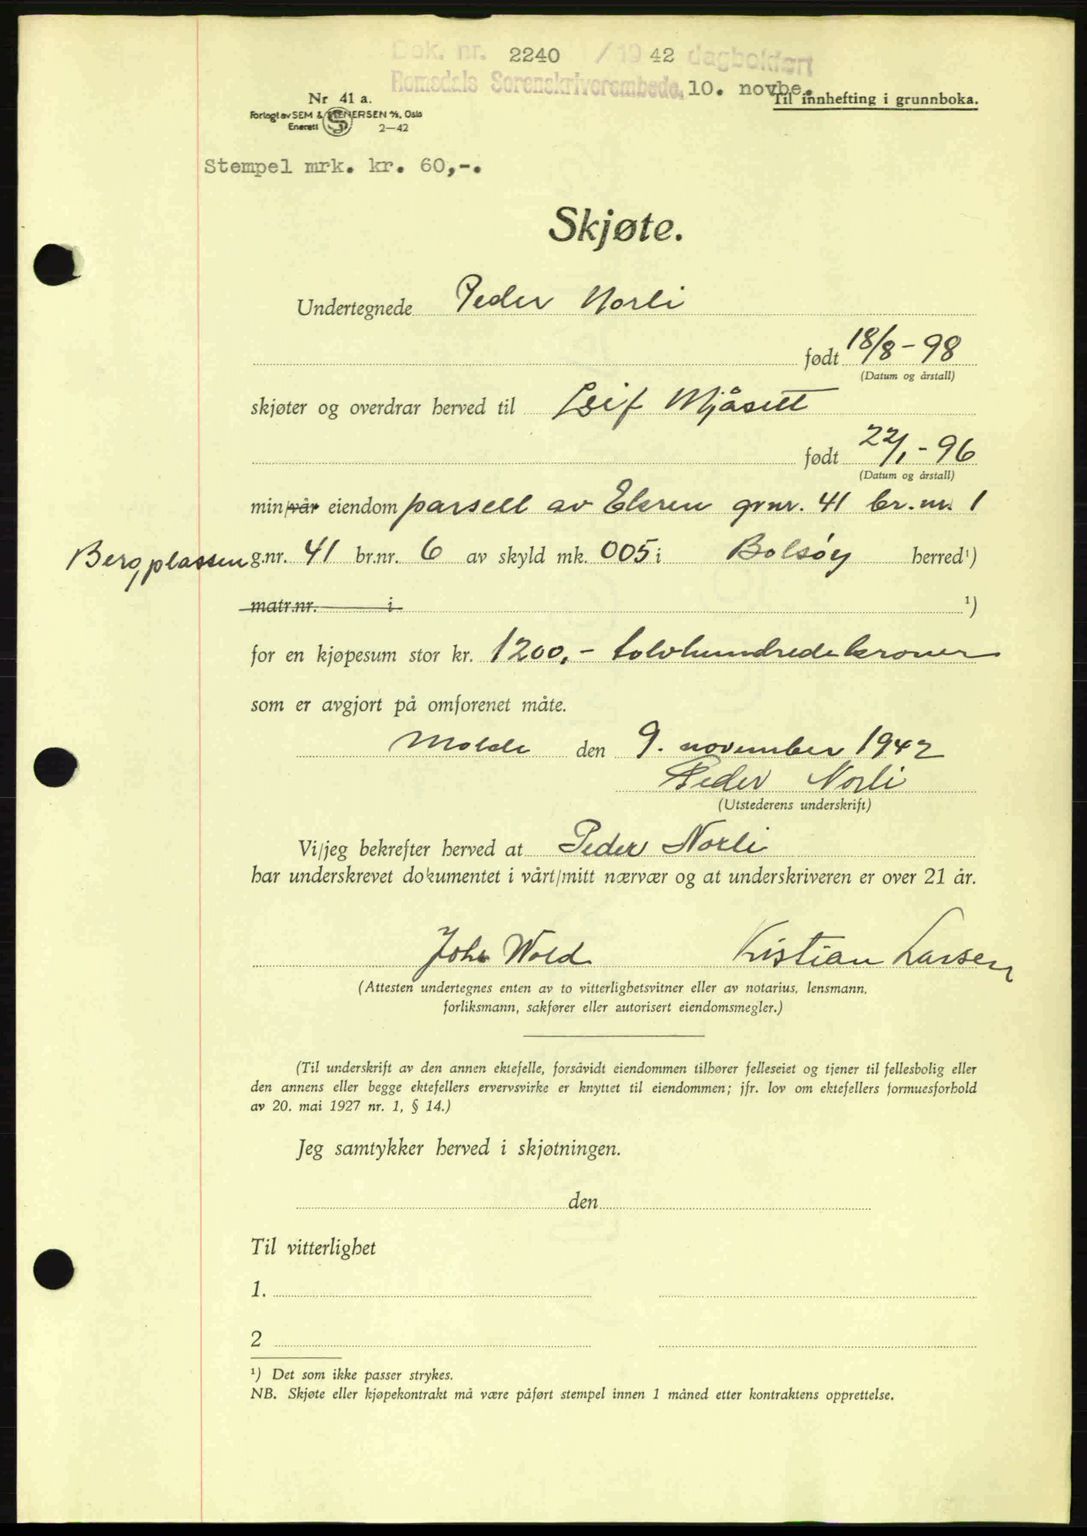 Dok. nr. 2240 / 1942 dagbokført
Romsdals Sorenskriverembede, 10. novbe.
Nr 41 a.
Til innhefting i grunnboka.
Forlagt av SEM & STENERSEN A/S, Oslo
Enerett 2—42
Stempel mrk. kr. 60,-.
Skjøte.
Undertegnede Peder Norli
født 18/8-98
(Datum og årstall)
skjøter og overdrar herved til Leif Mjåsett
født 22/1-96
(Datum og årstall)
min/vår eiendom parsell av Ekren grnr. 41 br.nr. 1
Bergplassen g.nr. 41 br.nr. 6 av skyld mk. 005 i Bolsøy herred¹)
matr.nr. i ¹)
for en kjøpesum stor kr. 1200,- tolvhundredekroner
som er avgjort på omforenet måte.
Molde den 9. november 1942
Peder Norli
(Utstederens underskrift)
Vi/jeg bekrefter herved at Peder Norli
har underskrevet dokumentet i vårt/mitt nærvær og at underskriveren er over 21 år.
John Wold Kristian Larsen
(Attesten undertegnes enten av to vitterlighetsvitner eller av notarius, lensmann,
forliksmann, sakfører eller autorisert eiendomsmegler.)
(Til underskrift av den annen ektefelle, forsåvidt eiendommen tilhører felleseiet og tjener til fellesbolig eller
den annens eller begge ektefellers ervervsvirke er knyttet til eiendommen; jfr. lov om ektefellers formuesforhold
av 20. mai 1927 nr. 1, § 14.)
Jeg samtykker herved i skjøtningen.
den
Til vitterlighet
1.
2
¹) Det som ikke passer strykes.
NB. Skjøte eller kjøpekontrakt må være påført stempel innen 1 måned etter kontraktens opprettelse.